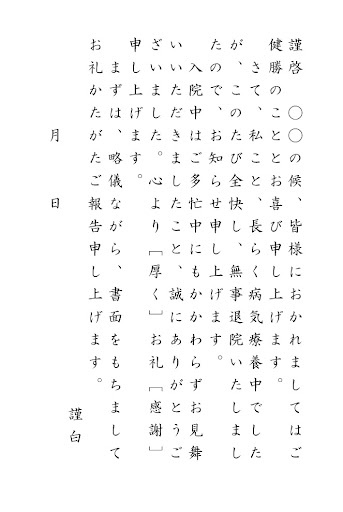 謹啓　〇〇の候、皆様におかれましてはご
健勝のこととお喜び申し上げます。
　さて、私こと、長らく病気療養中でした
が、このたび全快し、無事退院いたしまし
たので、お知らせ申し上げます。
　入院中はご多忙中にもかかわらずお見舞
いいただきましたこと、誠にありがとうご
ざいました。心より［厚く］お礼［感謝］
申し上げます。
　まずは、略儀ながら、書面をもちまして
お礼かたがたご報告申し上げます。
謹白
月　　日